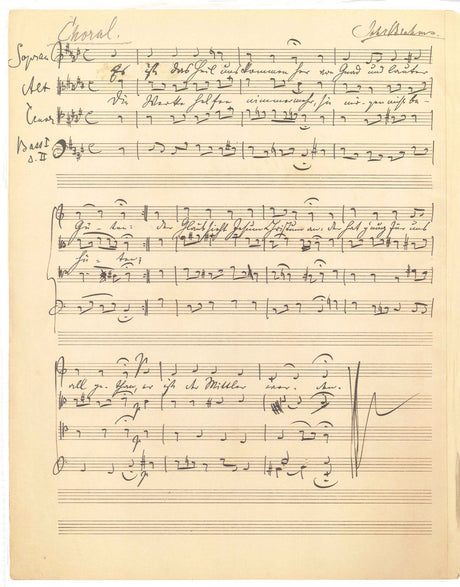 Choral. Joh. Brahms.
Sopran
Es ist das Heil uns kommen her von Gnad und lauter
Alt
Die Werke helfen nimmermehr, sie mö-gen nicht be-
Tenor
Bass I
u. II
Gü-ten: der Glaub sieht Jesum Christum an, der hat gnug für uns
hü-ten;
all ge-than, er ist der Mittler wor-den.